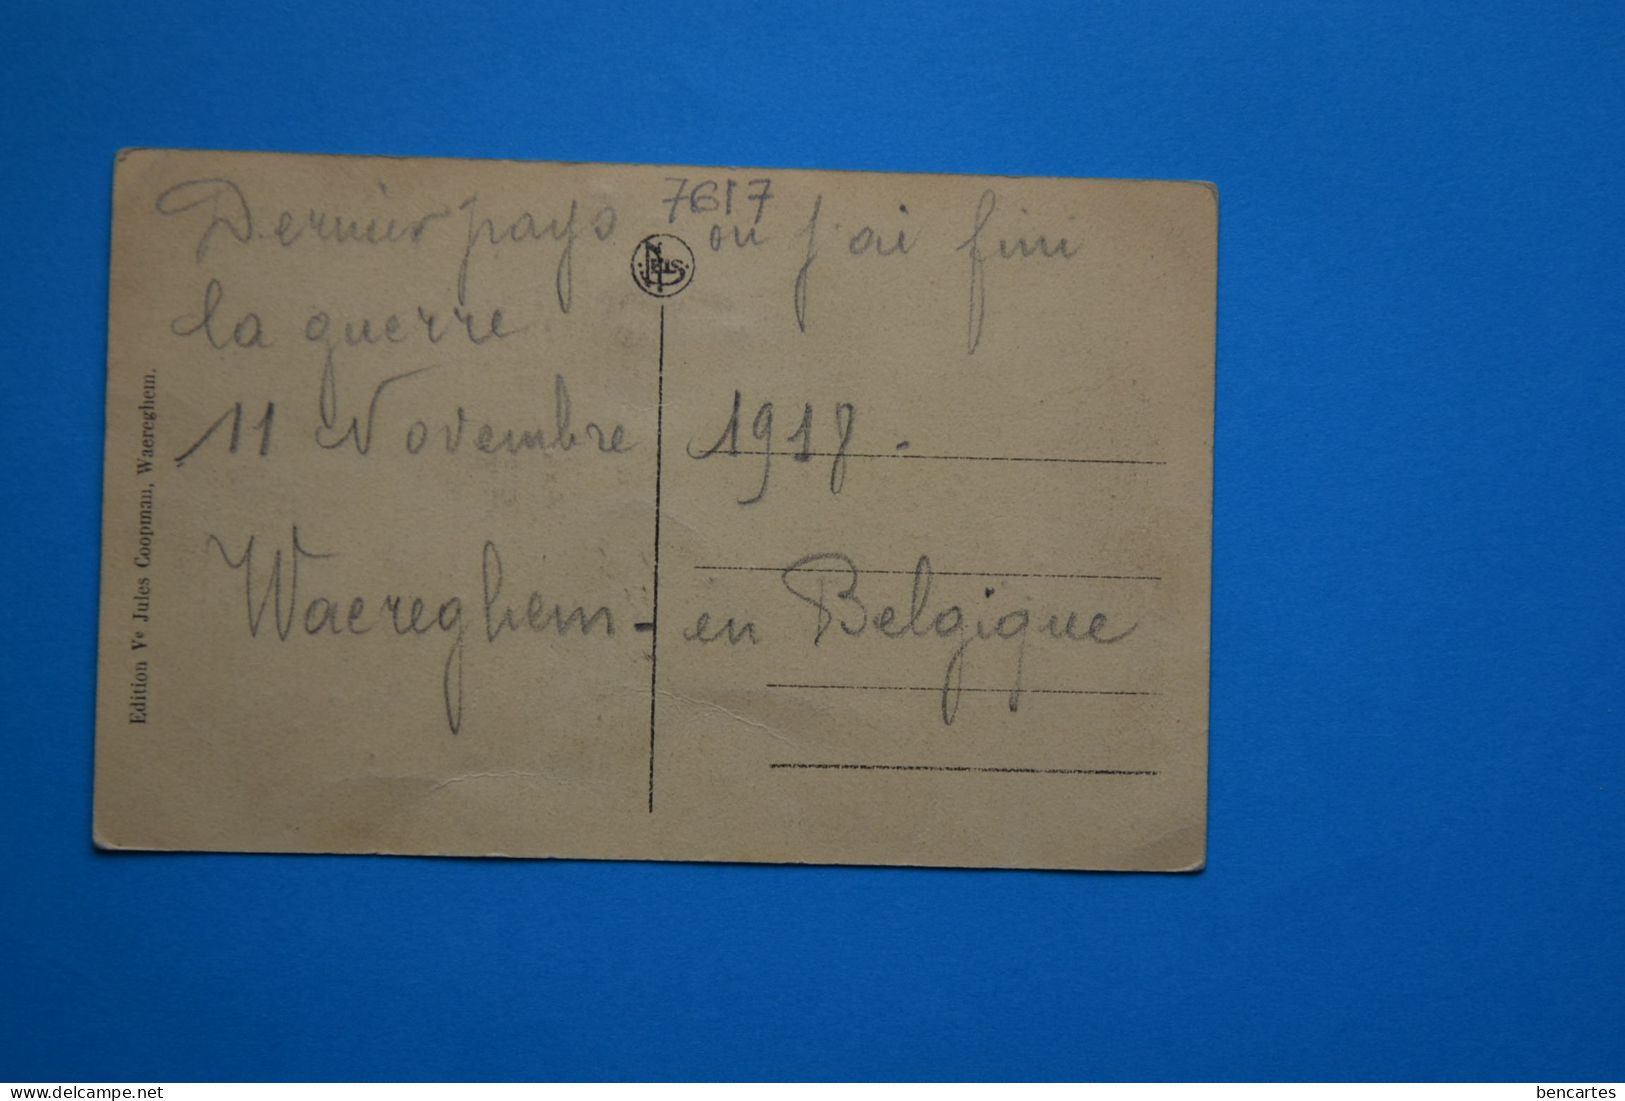 7617
Dernier pays ou j'ai fini
la guerre
11 Novembre 1918.
Waereghem - en Belgique
NELS
Edition Ve Jules Coopman, Waereghem.
delcampe.net
bencartes